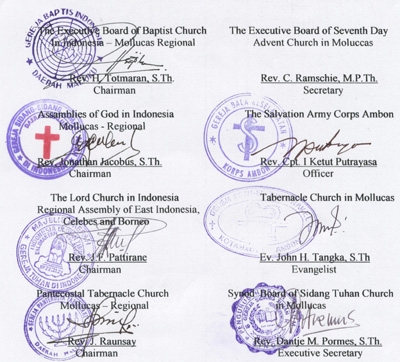 The Executive Board of Baptist Church
In Indonesia – Mollucas Regional
GEREJA BAPTIS INDONESIA
DAERAH
Rev. H. Totmaran, S.Th.
Chairman
The Executive Board of Seventh Day
Advent Church in Moluccas
Rev. C. Ramschie, M.P.Th.
Secretary
Assemblies of God in Indonesia
Mollucas - Regional
GEREJA SIDANG
DI INDONESIA
Rev. Jonathan Jacobus, S.Th
Chairman
The Salvation Army Corps Ambon
GEREJA BALA KESELAMATAN
KORPS AMBON
Rev. Cpt. I Ketut Putrayasa
Officer
The Lord Church in Indonesia
Regional Assembly of East Indonesia,
Celebes and Borneo
MAJELIS
GEREJA TUHAN DI INDONESIA
Rev. J.F. Pattirane
Chairman
Tabernacle Church in Mollucas
Ev. John H. Tangka, S.Th
Evangelist
Pantecostal Tabernacle Church
Mollucas - Regional
Rev. J. Raunsay
Chairman
Synod Board of Sidang Tuhan Church
in Mollucas
Rev. Dantje M. Pormes, S.Th.
Executive Secretary